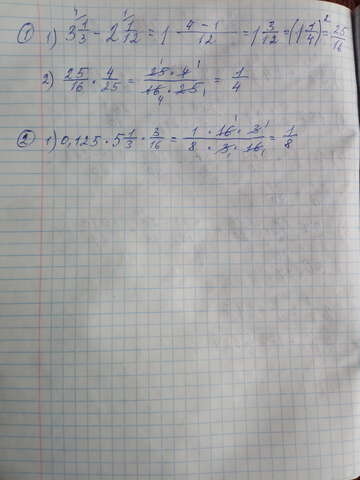 ① 1) 3 1/3 - 2 1/12 = 1 (4-1)/12 = 1 3/12 = (1 1/4)² = 25/16
2) 25/16 · 4/25 = (25 · 4)/(16 · 25) = 1/4
② 1) 0,125 · 5 1/3 · 3/16 = (1 · 16 · 3)/(8 · 3 · 16) = 1/8